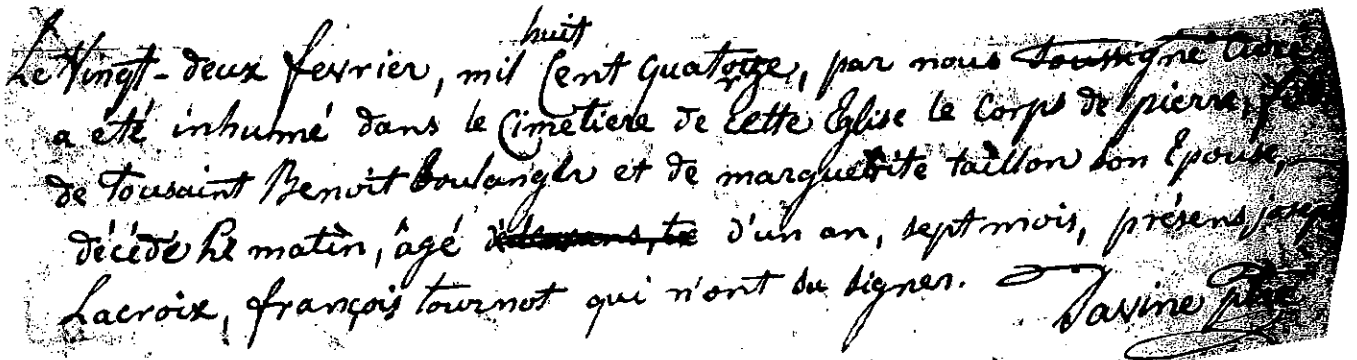 huit
Le Vingt-deux fevrier, mil Cent quatorze, par nous Soussigné Curé
a été inhumé dans le Cimetiere de cette Eglise le Corps de pierre, fils
de tousaint Benoit boulanger et de marguerite taillon son Epouse,
décédé le matin, âgé d'un an, sept mois, présens joseph
Lacroix, françois tournot qui n'ont su signer.
Davine ptre